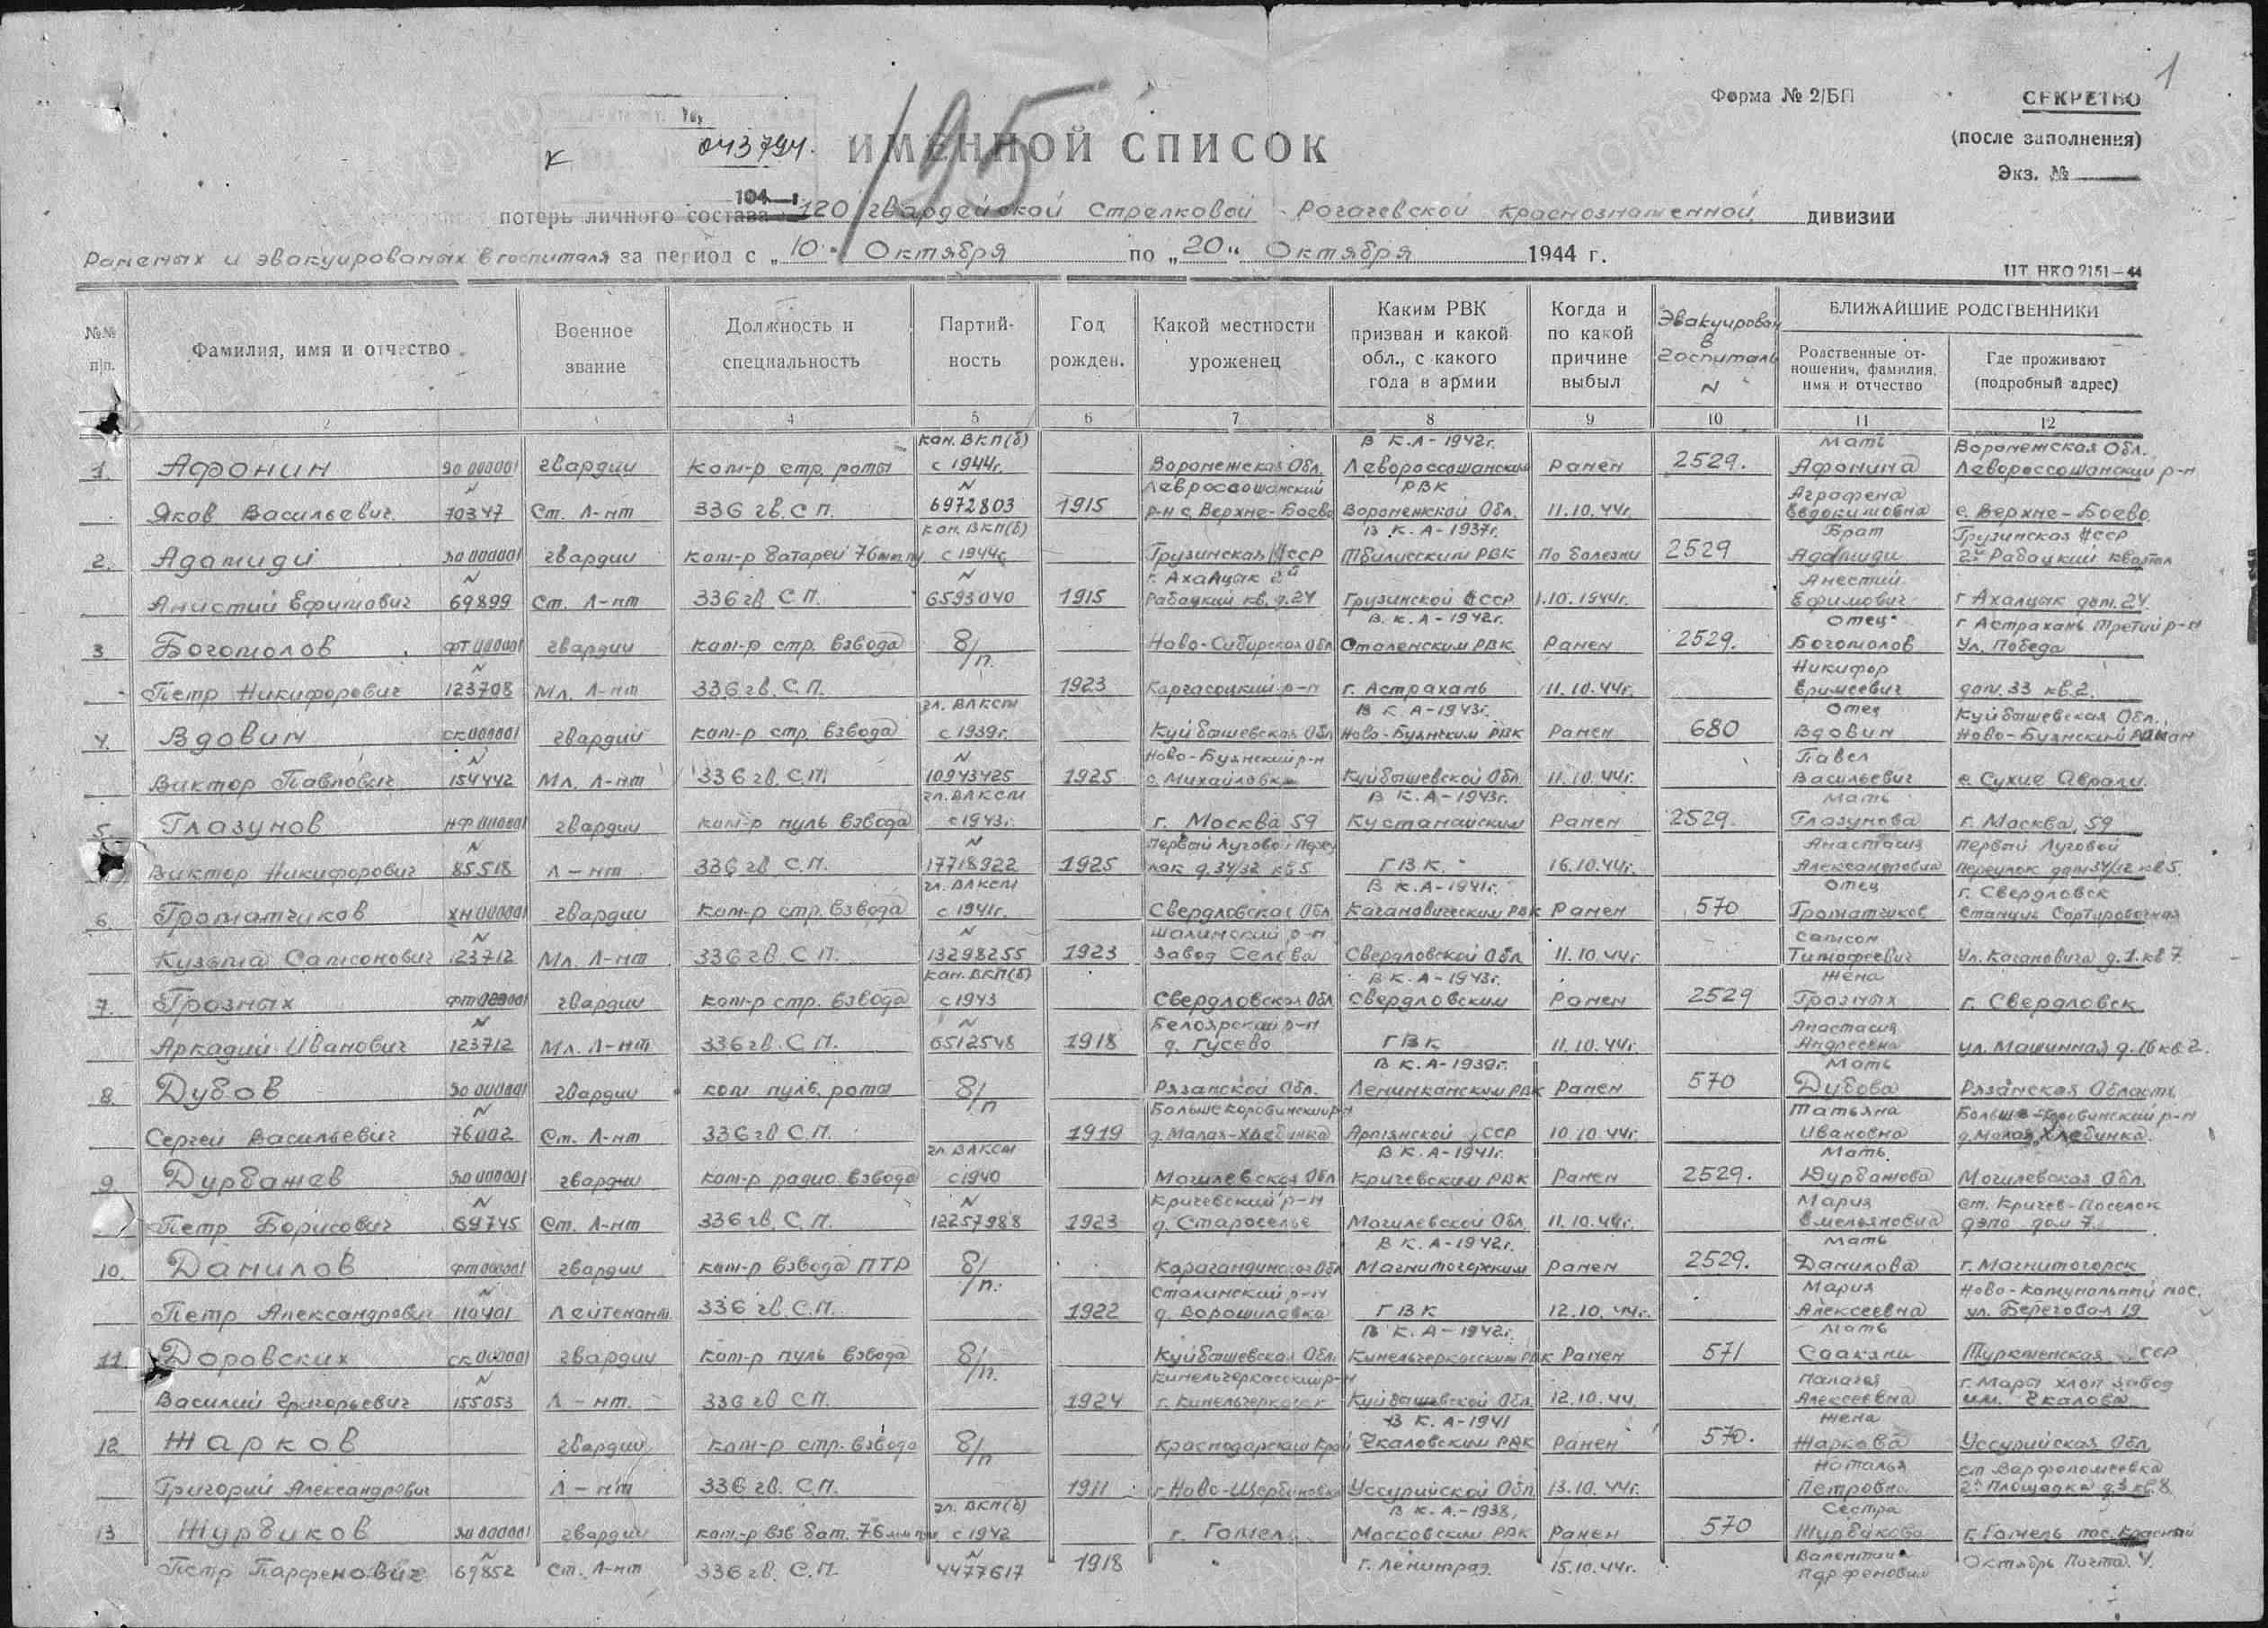 1
Форма № 2/БП
СЕКРЕТНО
(после заполнения)
Экз. №
к 043794.
195
ИМЕННОЙ СПИСОК
потерь личного состава 120 гвардейской Стрелковой Рогачевской Краснознаменной дивизии
Раненых и эвакуированых в госпиталя за период с „10" Октября по „20" Октября 1944 г.
ЦТ НКО 2151—44
№№ п/п. Фамилия, имя и отчество Военное звание Должность и специальность Партий-ность Год рожден. Какой местности уроженец Каким РВК призван и какой обл., с какого года в армии Когда и по какой причине выбыл Эвакуирован в госпиталь N БЛИЖАЙШИЕ РОДСТВЕННИКИ
Родственные от-ношения, фамилия, имя и отчество Где проживают (подробный адрес)
2 3 4 5 6 7 8 9 10 11 12
кан. ВКП(б) В К.А-1942г. Мать Воронежская Обл.
1. Афонин ЯО 000001 гвардии Ком-р стр. роты с 1944г. Воронежская Обл. Левороссошанским Ранен 2529. Афонина Левороссошанский р-н
N N Левроссошанский РВК Аграфена
Яков Васильевич 70347 Ст. Л-нт 336 гв. С.П. 6972803 1915 р-н с. Верхне-Боево Воронежской Обл. 11.10.44г. Евдокимовна с. Верхне-Боево
кан. ВКП(б) В К.А-1937г. Брат Грузинская ССР
2. Адамиди ЯО 000001 гвардии Ком-р батареи 76мм пу с 1944г. Грузинская ССР Тбилисским РВК По болезни 2529 Адамиди 2й Рабацкий квартал
N N г. Ахалцык 2й Анестий
Анистий Ефимович 69899 Ст. Л-нт 336 гв. С.П. 6593040 1915 Рабацкий кв. д.24 Грузинской ССР 1.10.1944г. Ефимович г Ахалцык дом. 24
В. К.А-1942г. Отец г. Астрахань Третий р-н
3 Богомолов ФТ 000001 гвардии Ком-р стр. взвода б/п. Ново-Сибирская Обл Сталенским РВК Ранен 2529. Богомолов Ул. Победа
N Никифор
Петр Никифорович 123708 Мл. Л-нт 336 гв. С.П. 1923 Каргасоцкий р-н г. Астрахань 11.10.44г. Еримеевич дом. 33 кв.2.
чл. ВЛКСМ В К.А-1943г. Отец Куйбышевская Обл.
4. Вдовин СК 000001 гвардий Ком-р стр. взвода с 1939г. Куйбышевская Обл Ново-Буянским РВК Ранен 680 Вдовин Ново-Буянский район
N N Ново-Буянский р-н Павел
Виктор Павлович 154442 Мл. Л-нт 336 гв. С.П. 10943425 1925 с. Михайловка Куйбышевской Обл. 11.10.44г. Васильевич с. Сухие Аврали.
чл. ВЛКСМ В К.А-1943г. Мать
5. Глазунов НФ 000001 гвардии Ком-р пуль взвода с 1943г. г. Москва 59 Кустанайским Ранен 2529. Глазунова г. Москва 59
N N Первый Лугової Пере Анастасия Первый Луговой
Виктор Никифорович 85518 Л-нт 336 гв. С.П. 17718922 1925 лок д.34/32 кв 5 ГВК. 16.10.44г. Александровна переулок дом 34/32 кв 5.
чл. ВЛКСМ В К.А-1941г. Отец г. Свердловск
6. Громатчиков ХН 000001 гвардии Ком-р стр. взвода с 1941г. Свердловская Обл. Кагановическим РВК Ранен 570 Громатчиков Станция Сортировочная
N N Шалинский р-н Самсон
Кузьма Самсонович 123712 Мл. Л-нт 336 гв. С.П. 13298255 1923 Завод Селева Свердловской Обл 11.10.44г. Тимофеевич Ул. Кагановича д.1. кв 7.
кан. ВКП(б) В К.А-1943г. Жена
7. Грозных ФТ 000001 гвардии Ком-р стр. взвода с 1943 Свердловская Обл Свердловским Ранен 2529 Грозных г. Свердловск
N N Белоярский р-н Анастасия
Аркадий Иванович 123712 Мл. Л-нт 336 гв. С.П. 6512548 1918 д. Гусево ГВК 11.10.44г. Андреевна ул. Машинная д.16 кв 2.
В К.А-1939г. Мать
8. Дубов ЯО 000001 гвардии ком пуль. роты б/п Рязанской Обл. Ленинканским РВК Ранен 570 Дубова Рязанская Область
N Больше Коровинский р-н Татьяна Больше-Коровинский р-н
Сергей Васильевич 76002 Ст. Л-нт 336 гв С.П. 1919 д. Малая-Хлебинка Армянской ССР 10.10.44г. Ивановна д. Малая Хлебинка.
чл. ВЛКСМ В К.А-1941г. Мать
9. Дурбажев ЯО 000001 гвардии Ком-р радио взвода с 1940 Могилевская Обл Кричевским РВК Ранен 2529. Дурбажова Могилевская Обл.
N N Кричевский р-н Мария ст. Кричев-Поселок
Петр Борисович 69745 Ст. Л-нт 336 гв. С.П. 12257988 1923 д. Староселье Могилевской Обл. 11.10.44г. Емельяновна дэпо дом 7
В К.А-1942г. Мать
10. Данилов ФТ 000001 гвардии Ком-р взвода ПТР б/п. Карагандинская Обл Магнитогорским Ранен 2529. Данилова г. Магнитогорск
N Сталинский р-н Мария Ново-Комунальний пос.
Петр Александрович 110401 Лейтенант 336 гв. С.П. 1922 д. Ворошиловка ГВК 12.10.44г. Алексеевна ул. Береговая 19
В К.А-1942г. Мать
11 Доровских СК 000001 гвардии Ком-р пуль взвода б/п. Куйбышевская Обл. Кинельчеркасским РВК Ранен 571 Саакяни Туркменская ССР
N Кинельчеркасский р-н Палагея г. Мары хлоп завод
Василий Григорьевич 155053 Л-нт. 336 гв С.П. 1924 г. Кинельчеркасск Куйбышевской Обл. 12.10.44 Алексеевна им. Чкалова
В К.А-1941 Жена
12 Жарков гвардии Ком-р стр. взвода б/п Краснодарский Край Чкаловским РВК Ранен 570. Жаркова Уссурийская Обл
Наталья ст Варфоломеевка
Григорий Александрович Л-нт 336 гв. С.П. 1911 г. Ново-Щербиновка Уссурийской Обл 13.10.44г. Петровна 2я Площадка д.3 кв.8
чл. ВКП(б) В К.А.-1938, Сестра
13 Журбиков ЯО 000001 гвардии ком-р взв бат. 76мм пуш с 1942 г. Гомель Московским РВК Ранен 570 Журбикова г. Гомель пос. Красный
N N Валентина Октябрь Почта. 4.
Петр Парфенович 69852 Ст. Л-нт 336 гв. С.П. 4477617 1918 г. Ленинград. 15.10.44г. Парфеновна